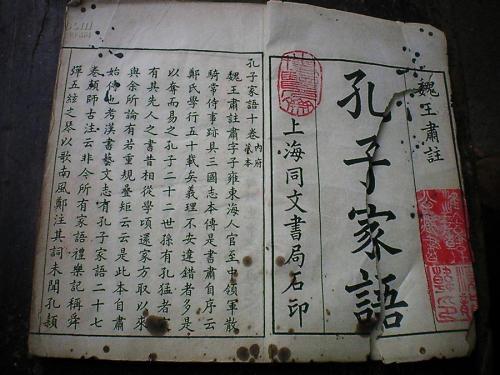 魏王肅註
孔子家語
上海同文書局石印
孔子家語十卷內府藏本
魏王肅註肅字子雍東海人官至中領軍散
騎常侍事跡具三國志本傳是書肅自序云
鄭氏學行五十載矣義理不安違錯者多是
以奪而易之孔子二十二世孫有孔猛者家
有其先人之書昔相從學頃還家方取以來
與余所論有若重規疊矩云云是此本自肅
始傳也考漢書藝文志有孔子家語二十七
卷顏師古注云非今所有家語禮樂記稱舜
彈五弦之琴以歌南風鄭注其詞未聞孔穎